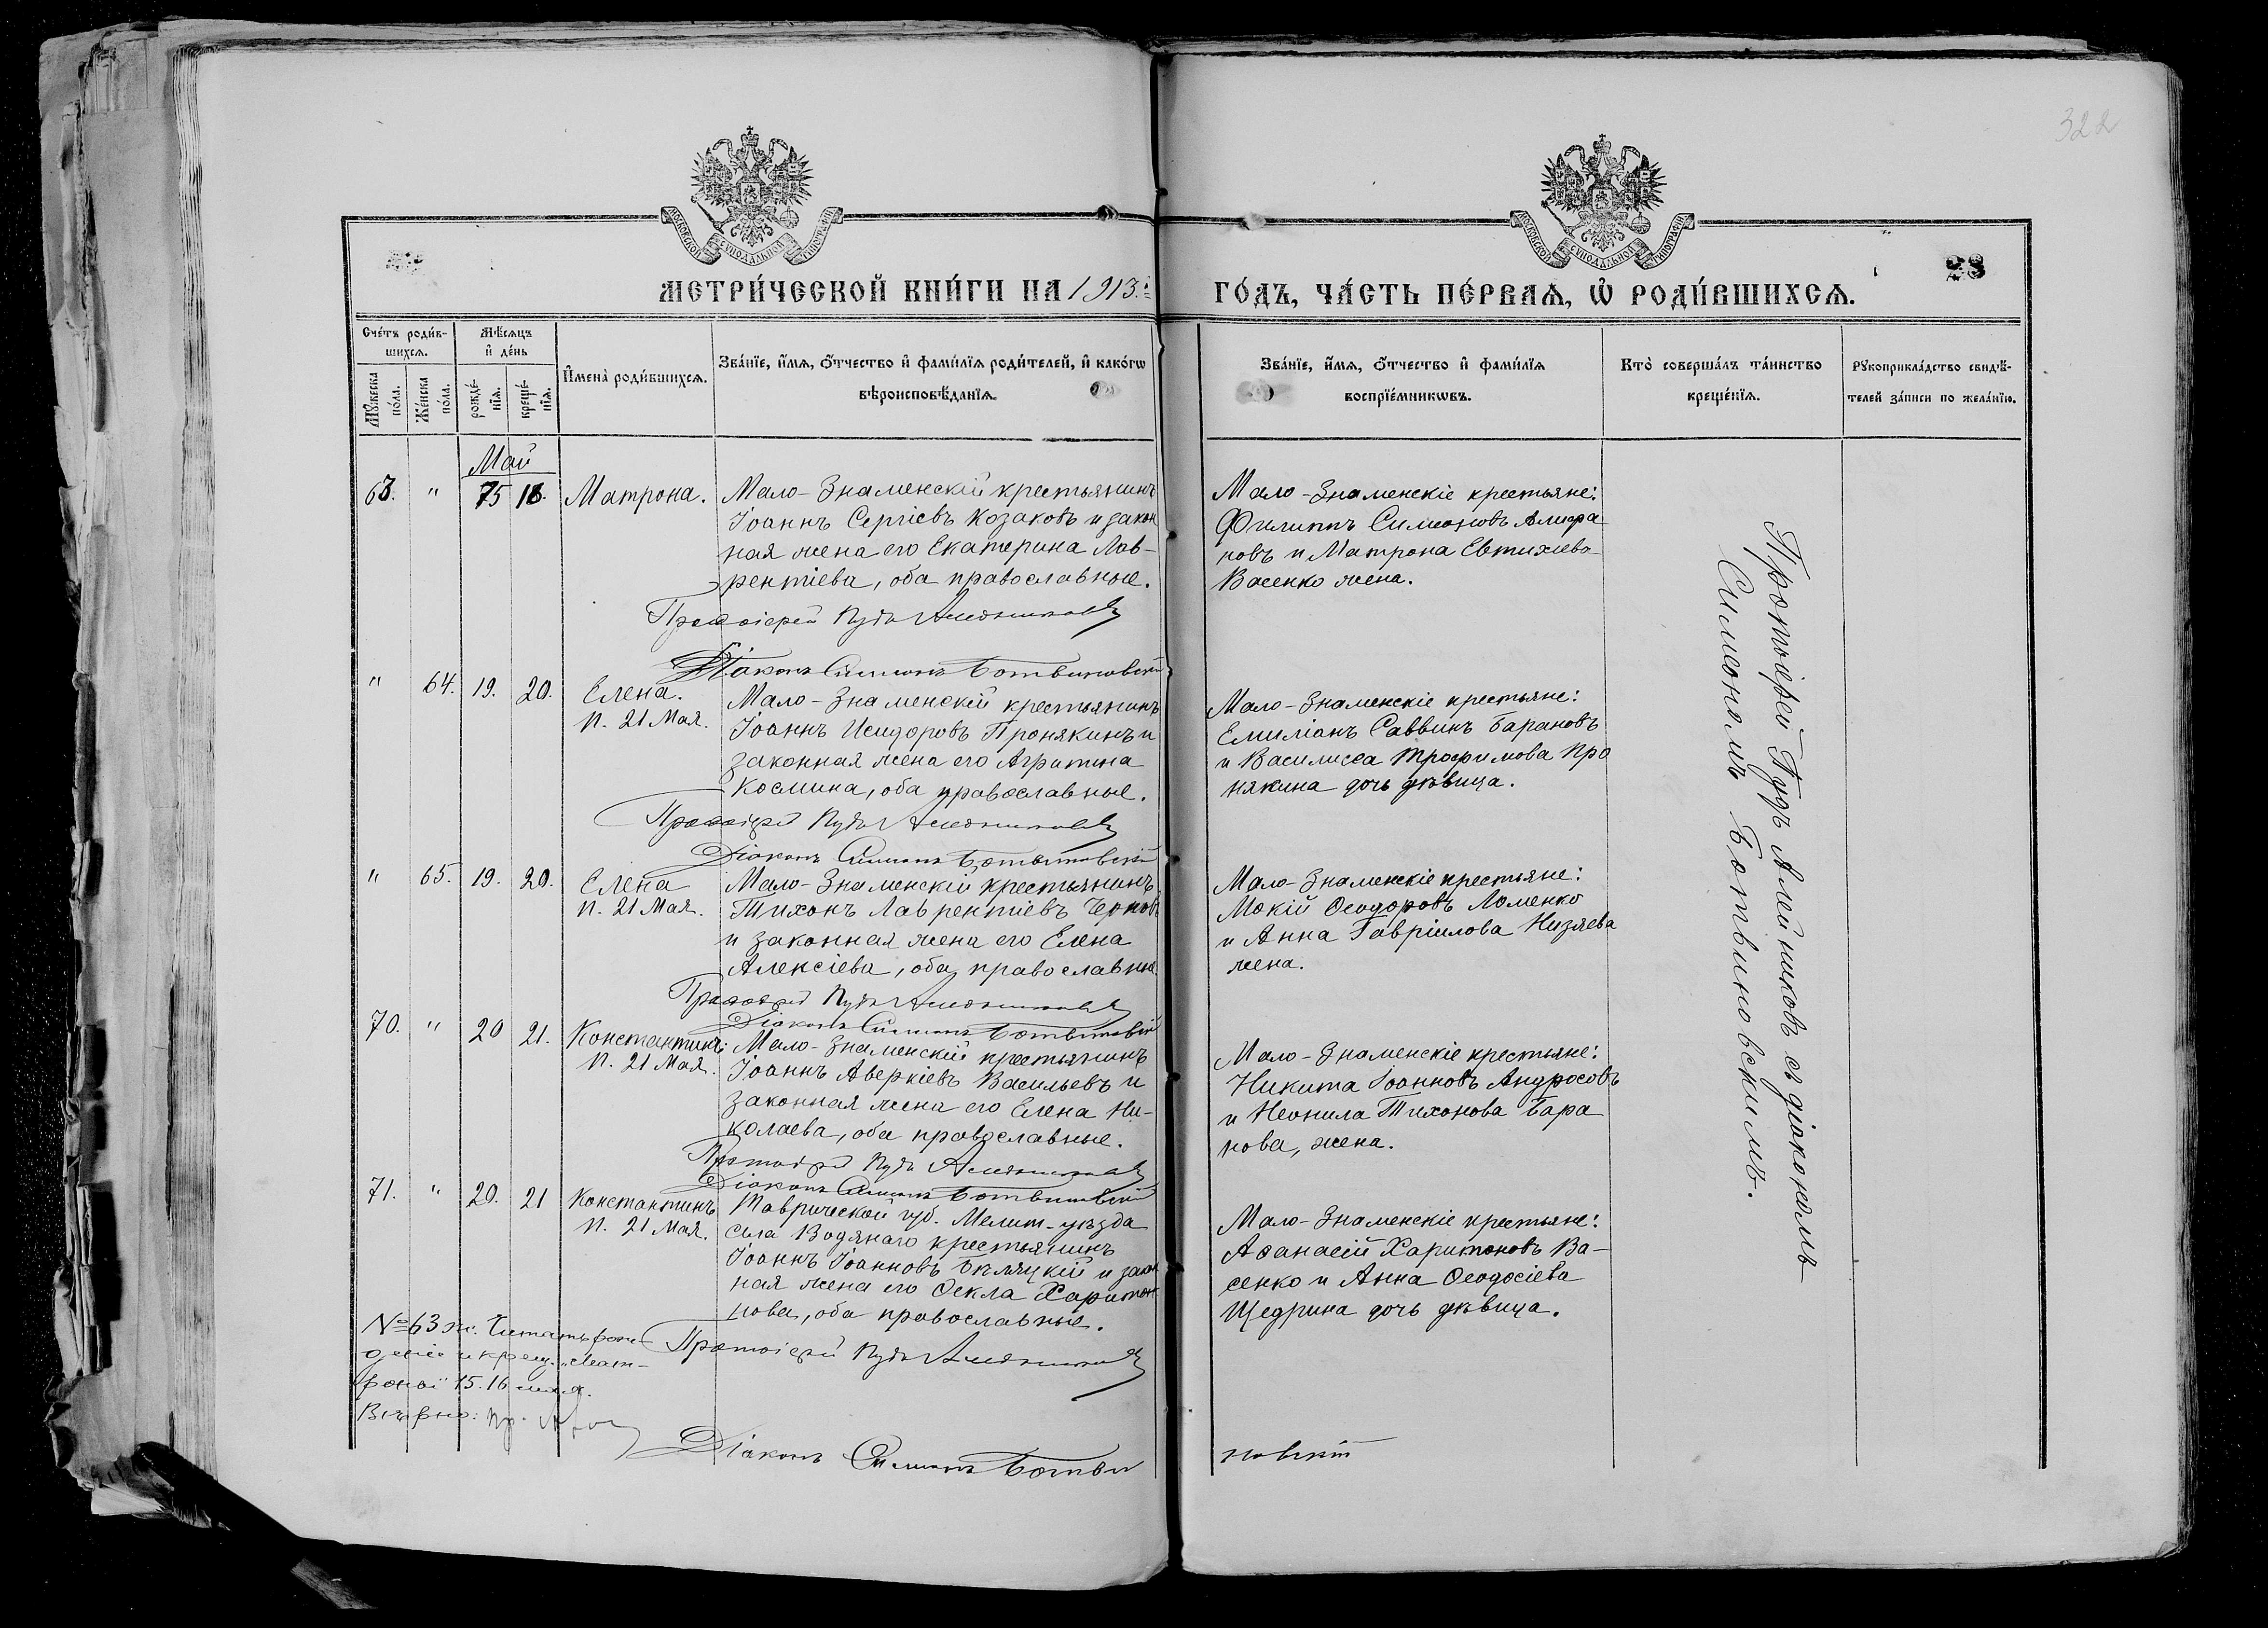 322
МОСКОВСКОЙ СУНОДАЛЬНОЙ ТИПОГРАФІИ
МОСКОВСКОЙ СУНОДАЛЬНОЙ ТИПОГРАФІИ
28
МЕТРИ́ЧЕСКОЙ КНИ́ГИ НА 1913.
ГО́ДЪ, ЧА́СТЬ ПЕ́РВАѦ, Ѡ҆ РОДИ́ВШИХСѦ.
Сче́тъ роди́в-
шихсѧ.
Мꙋ́жеска по́ла.
Же́нска по́ла.
Мѣ́сѧцъ
и҆ де́нь
рожде́-нїѧ.
креще́-нїѧ.
И҆мена̀ роди́вшихсѧ.
Зва́нїе, и҆́мѧ, ѻ҆́тчество и҆ фами́лїѧ роди́телей, и҆ како́гѡ
вѣроисповѣ́данїѧ.
Зва́нїе, и҆́мѧ, ѻ҆́тчество и҆ фами́лїѧ
воспрїе́мникѡвъ.
Кто̀ соверша́лъ та́инство
креще́нїѧ.
Рꙋкоприкла́дство свидѣ́-
телей за́писи по жела́нїю.
Май
63. " 15 16. Матрона. Мало-Знаменскій крестьянинъ
Іоаннъ Сергіевъ Козаковъ и закон
ная жена его Екатерина Лав-
рентіева, оба православные.
Протоіерей Пудъ Алейниковъ
Діаконъ Симеонъ Ботвиновскій
Мало-Знаменскіе крестьяне:
Филиппъ Симеоновъ
новъ и Матрона Евтихіева
Васенко жена.
" 64. 19. 20. Елена.
п. 21 Мая.
Мало-Знаменскій крестьянинъ
Іоаннъ Исидоровъ Пронякинъ и
законная жена его Агрипина
Космина, оба православные.
Протоіерей Пудъ Алейниковъ
Діаконъ Симеонъ Ботвиновскій
Мало-Знаменскіе крестьяне:
Емиліанъ Саввинъ Барановъ
и Василисса Трофимова Про
някина дочь дѣвица.
" 65. 19. 20. Елена
п. 21 Мая.
Мало-Знаменскій крестьянинъ
Тихонъ Лаврентіевъ Черновъ
и законная жена его Елена
Алексіева, оба православные
Протоіерей Пудъ Алейниковъ
Діаконъ Симеонъ Ботвиновскій
Мало-Знаменскіе крестьяне:
Мокій Ѳеодоровъ Ломенко
и Анна Гавріилова Низяева
жена.
70. " 20 21. Константинъ
п. 21 Мая.
Мало-Знаменскій крестьянинъ
Іоаннъ Аверкіевъ Васильевъ и
законная жена его Елена Ни-
колаева, оба православные.
Протоіерей Пудъ Алейниковъ
Діаконъ Симеонъ Ботвиновскій
Мало-Знаменскіе крестьяне:
Никита Іоанновъ Андросовъ
и Неонила Тихонова Бара
нова, жена.
71. " 20. 21 Константинъ
п. 21 Мая.
Таврической губ. Мелит. уѣзда
села Водянаго крестьянинъ
Іоаннъ Іоанновъ Бѣляцкій и закон
ная жена его Ѳекла Харитон
нова, оба православные.
Протоіерей Пудъ Алейниковъ
Діаконъ Симеонъ Ботви
новскій
Мало-Знаменскіе крестьяне:
Аѳанасій Харитоновъ Ва-
сенко и Анна Ѳеодосіева
Щедрина дочь дѣвица.
Протоіерей Пудъ Алейниковъ съ діакономъ
Симеономъ Ботвиновскимъ.
№ 63 ж. Читать рож
деніе и крещ. Мат-
роны 15. 16 мая.
Вѣрно: